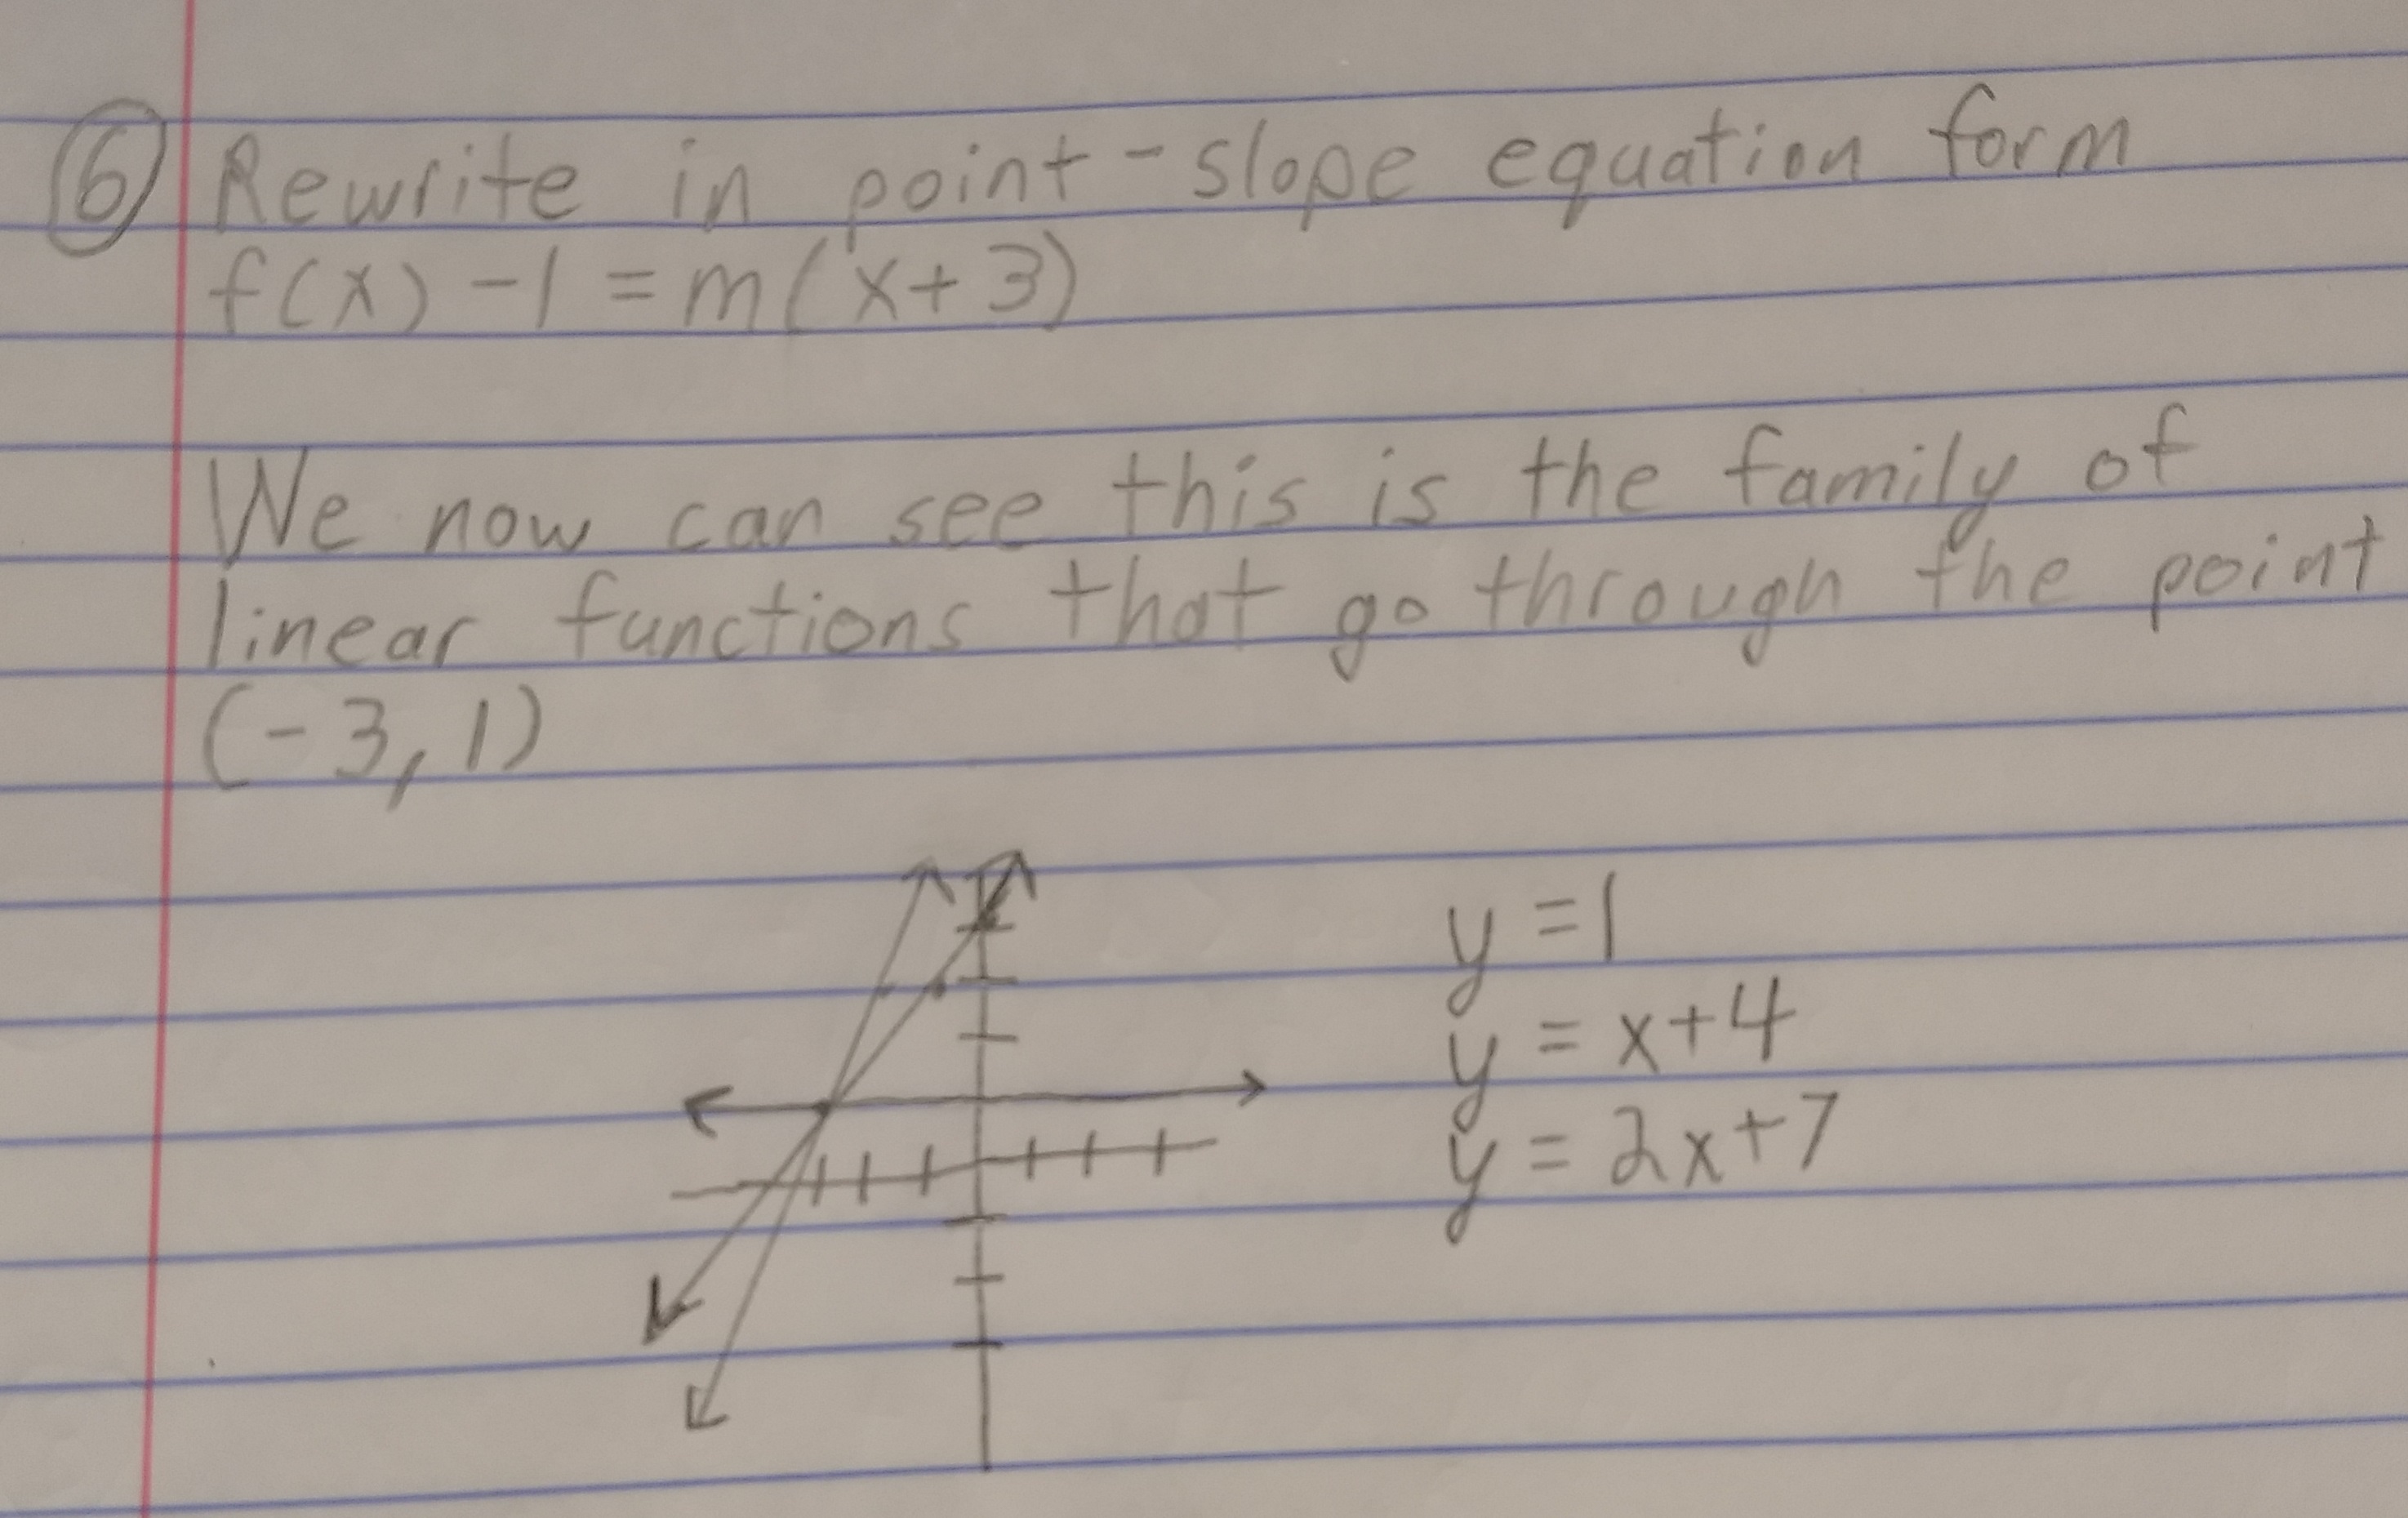 6 Rewrite in point-slope equation form
f(x) - 1 = m(x+3)
We now can see this is the family of
linear functions that go through the point
(-3, 1)
y = 1
y = x+4
y = 2x+7